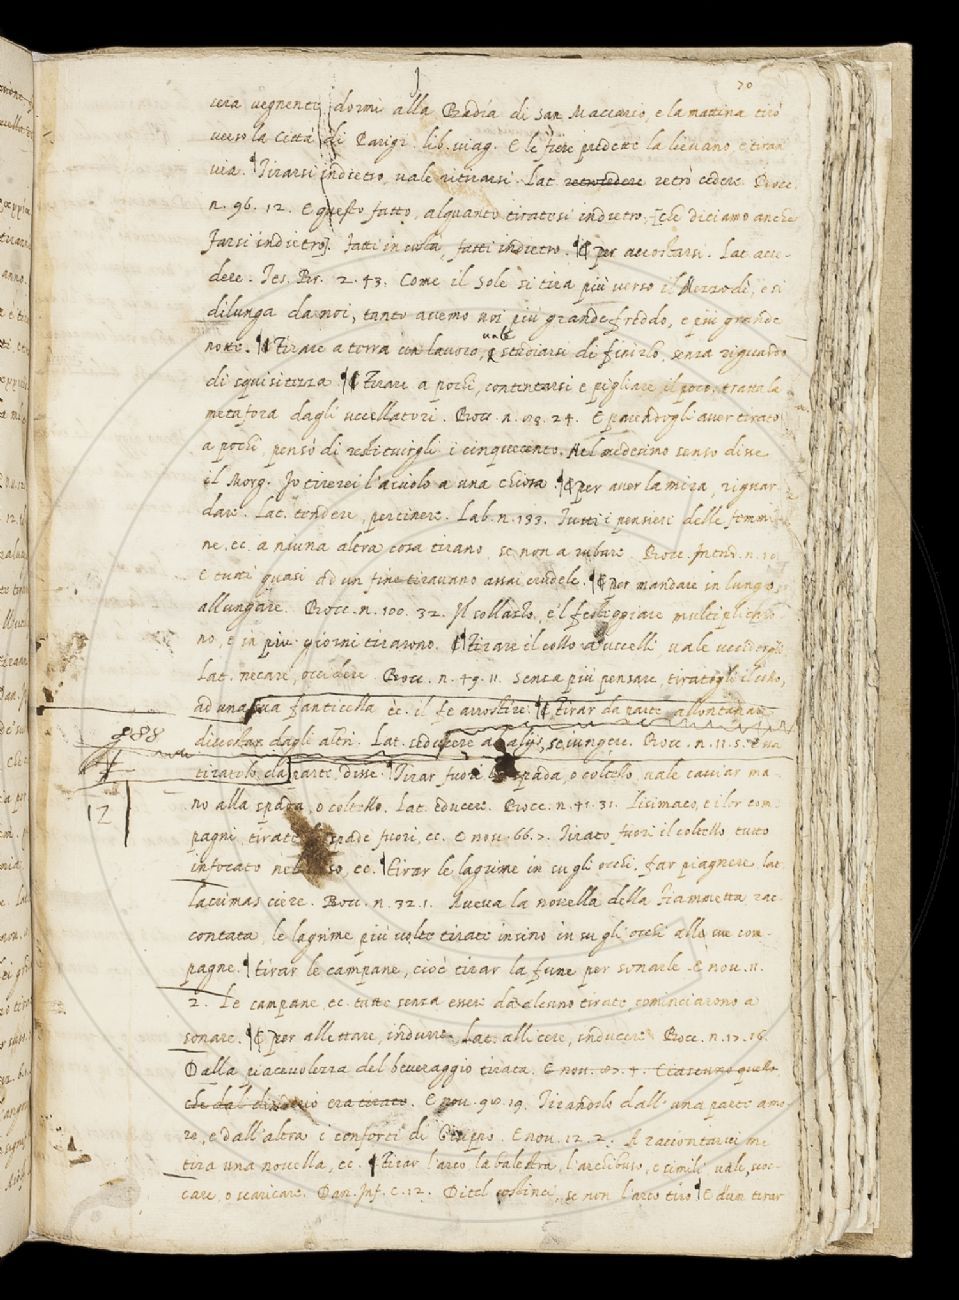 70
sera vegnente dormi alla Badía di San Maccario, e la mattina tirò
verso la Città di Parigi. lib. viag. E le fiere predette la lievano, e tiran
via. Tirarsi indietro, vale ritirarsi. Lat. retrocedere retrò cedere. Bocc.
n. 96. 12. E questo fatto, alquanto tiratosi indietro, [che diciamo anche
farsi indietro]. fatti in costa, fatti indietro. ¶ per accostarsi. Lat. acce-
dere. Tes. Br. 2. 43. Come il Sole si tira più verso il Mezzodì, e si
dilunga da noi, tanto avemo noi più grande freddo, e più grande
notte. ¶ Tirare a terra un lavoro, vale studiarsi di finirlo, senza riguardo
di squisitezza. ¶ Tirare a pochi, contentarsi e pigliare il poco, tratta la
metafora dagli uccellatori. Bocc. n. 24. E parendogli aver tirato
a pochi, pensò di restituirgli i cinquecento. Nel medesimo senso disse
il Morg. Io tirerei l'aiuolo a una chiosa. ¶ per aver la mira, riguar-
dare. Lat. tendere, pertinere. Lab. n. 133. Tutti i pensieri delle femmi-
ne, ec. a niuna altra cosa tirano, se non a rubare. Bocc. n. 10.
E tutti quasi ad un fine tiravano assai crudele. ¶ per mandare in lungo,
allungare. Bocc. n. 100. 32. Il sollazzo, e'l festeggiare multiplicaro-
no, e in più giorni tirarono. ¶ Tirare il collo a uccelli, vale uccidergli.
Lat. necare, occidere. Bocc. n. 49. 11. senza più pensare, tiratogli il collo,
ad una sua fanticella ec. il fe arrostire. ¶ Tirar da parte allontanar
discostar dagli altri. Lat. seducere ab aliis, seiungere. Bocc. n. 11. 5. E
288
tiratolo da parte, disse. Tirar fuori la spada, o coltello, vale cacciar ma-
12
no alla spada, o coltello. Lat. educere. Bocc. n. 41. 31. Lisimaco, e i lor com-
pagni, tirate le spade fuori, ec. E nov. 66. 7. Tirato fuori il coltello tutto
infocato nel viso, ec. ¶ tirar le lagrime in su gli occhi. far piagnere. lat.
lacrimas ciere. Bocc. n. 32. 1. Aveva la novella della Fiammetta rac-
contata, le lagrime più volte tirate insino in su gli occhi alle sue com-
pagne. ¶ tirar le campane, cioè tirar la fune per sonarle. E nov. 11.
2. Le campane, ec. tutte senza esser da alcuno tirate, cominciarono a
sonare. ¶ per allettare, indurre. Lat. allicere, inducere. Bocc. n. 17. 16.
Dalla piacevolezza del beveraggio tirata. E nov. 4. E ciascuno quello
che dal era tirato. E nov. 98. 19. Tirandolo dall'una parte amo-
re, e dall'altra i conforti di Gisippo. E nov. 12. 2. A raccontarvi mi
tira una novella, ec. ¶ Tirar l'arco, la balestra, l'archibuso, e simili vale, scoc-
care, o scaricare. Dan. Inf. c. 12. Ditel costinci, se non l'arco tiro. ¶ E d'un tirar